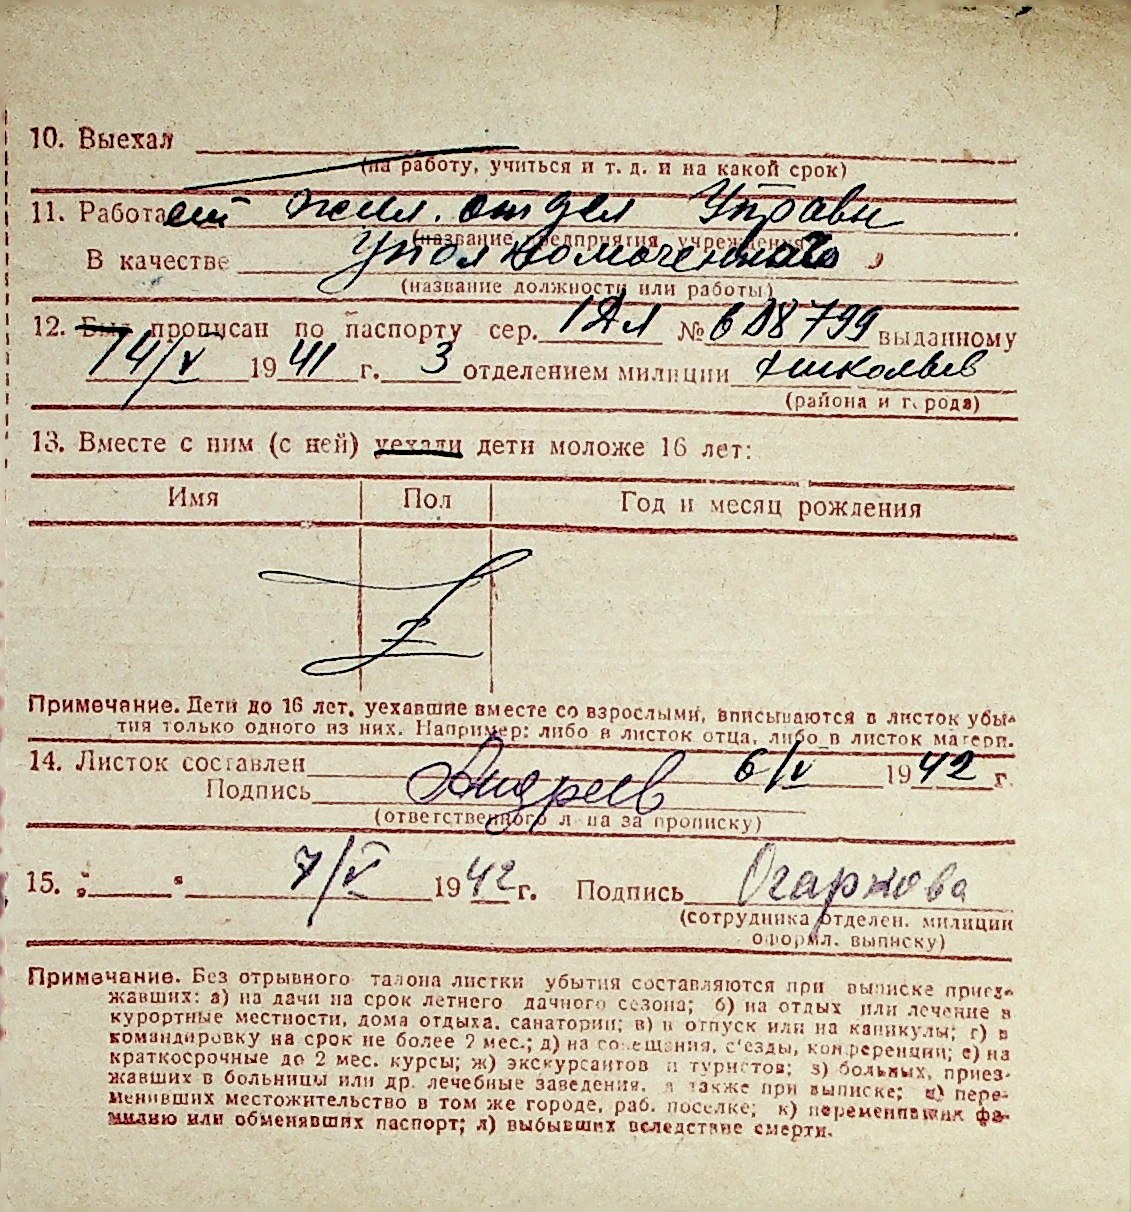 10. Выехал
(на работу, учиться и т. д. и на какой срок)
11. Работает Жил. отдел Управы
(название предприятия учреждения)
В качестве Уполномоченного
(название должности или работы)
12. Был прописан по паспорту сер. 1Дл № 608799 выданному
14/V 1941 г. 3 отделением милиции г. Николаев
(района и города)
13. Вместе с ним (с ней) уехали дети моложе 16 лет:
Имя Пол Год и месяц рождения
Примечание. Дети до 16 лет, уехавшие вместе со взрослыми, вписываются в листок убы-
тия только одного из них. Например: либо в листок отца, либо в листок матери.
14. Листок составлен 6/V 1942 г.
Подпись Андреев
(ответственного л на за прописку)
15. „ “ 7/V 1942 г. Подпись Огаркова
(сотрудника отделен. милиции
оформл. выписку)
Примечание. Без отрывного талона листки убытия составляются при выписке приез-
жавших: а) на дачи на срок летнего дачного сезона; б) на отдых или лечение в
курортные местности, дома отдыха, санатории; в) в отпуск или на каникулы; г) в
командировку на срок не более 2 мес.; д) на совещания, с'езды, конференции; е) на
краткосрочные до 2 мес. курсы; ж) экскурсантов и туристов; з) больных, приез-
жавших в больницы или др. лечебные заведения, а также при выписке; и) пере-
менивших местожительство в том же городе, раб. поселке; к) переменивших фа-
милию или обменявших паспорт; л) выбывших вследствие смерти.